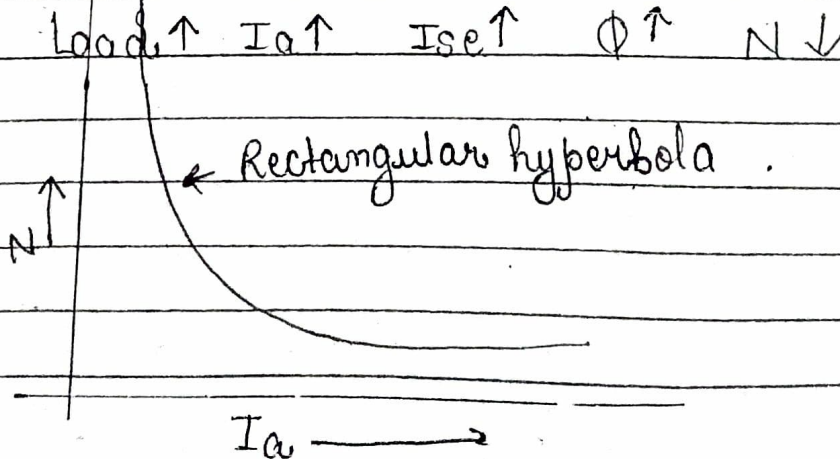 Load ↑ Ia ↑ Ise ↑ Φ ↑ N ↓
← Rectangular hyperbola .
N ↑
Ia →